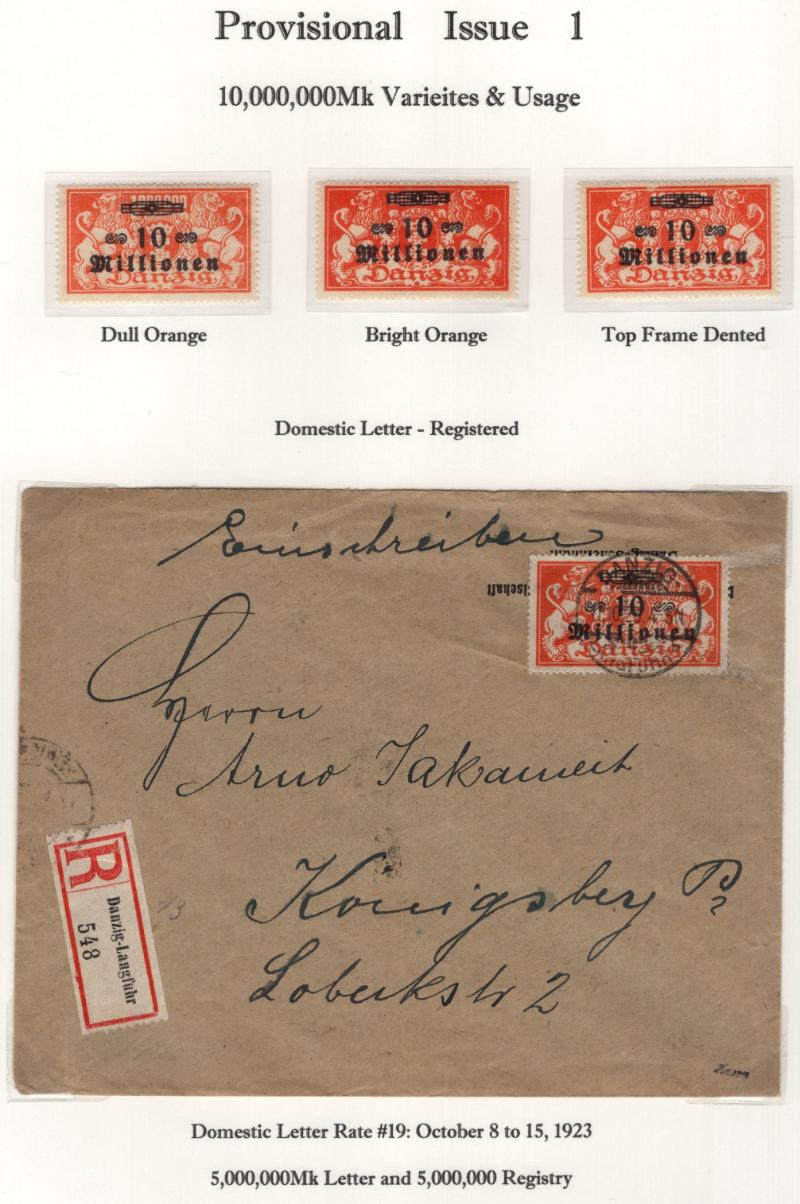 Provisional Issue 1
10,000,000Mk Varieites & Usage
10
Millionen
Danzig
10
Millionen
Danzig
10
Millionen
Danzig
Dull Orange
Bright Orange
Top Frame Dented
Domestic Letter - Registered
Einschreiben
DANZIG
10
Millionen
Danzig
Herrn
Arno Jakameit
Königsberg Pr
Lobeckstr 2
R
Danzig-Langfuhr
548
Domestic Letter Rate #19: October 8 to 15, 1923
5,000,000Mk Letter and 5,000,000 Registry